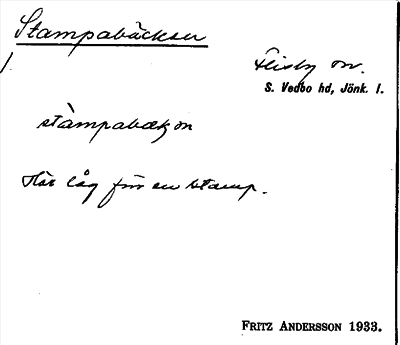 Stampabäcken
Flisby sn.
S. Vedbo hd, Jönk. l.
1.
stàmpabækən
Här låg förr en stamp.
FRITZ ANDERSSON 1933.